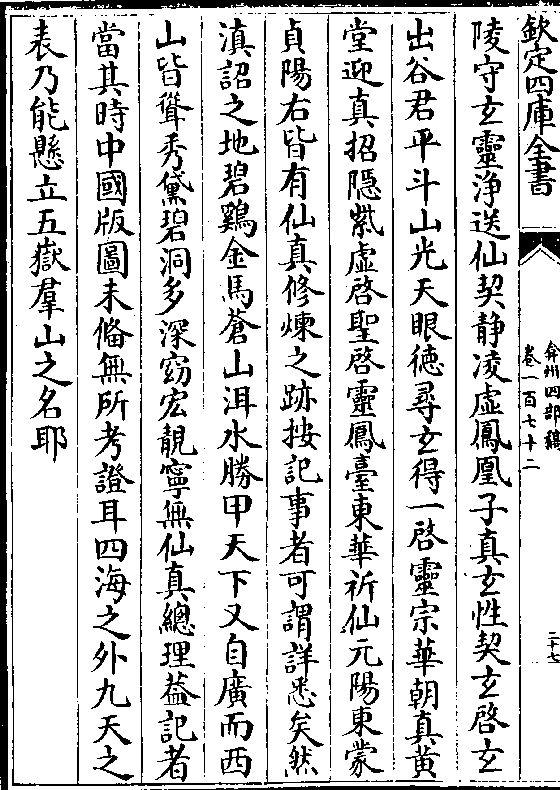 欽定四庫全書
弇州四部稿
卷一百七十二
二十七
陵守玄靈浄送仙契静凌虚鳳凰子真玄性契玄啓玄
出谷君平斗山光天眼徳尋玄得一啓靈宗華朝真黄
堂迎真招隠紫虚啓聖啓靈鳳臺東華祈仙元陽東蒙
貞陽右皆有仙真修煉之跡按記事者可謂詳悉矣然
滇詔之地碧鷄金馬蒼山洱水勝甲天下又自廣而西
山皆聳秀黛碧洞多深窈宏靚寧無仙真總理葢記者
當其時中國版圖未備無所考證耳四海之外九天之
表乃能懸立五嶽羣山之名耶